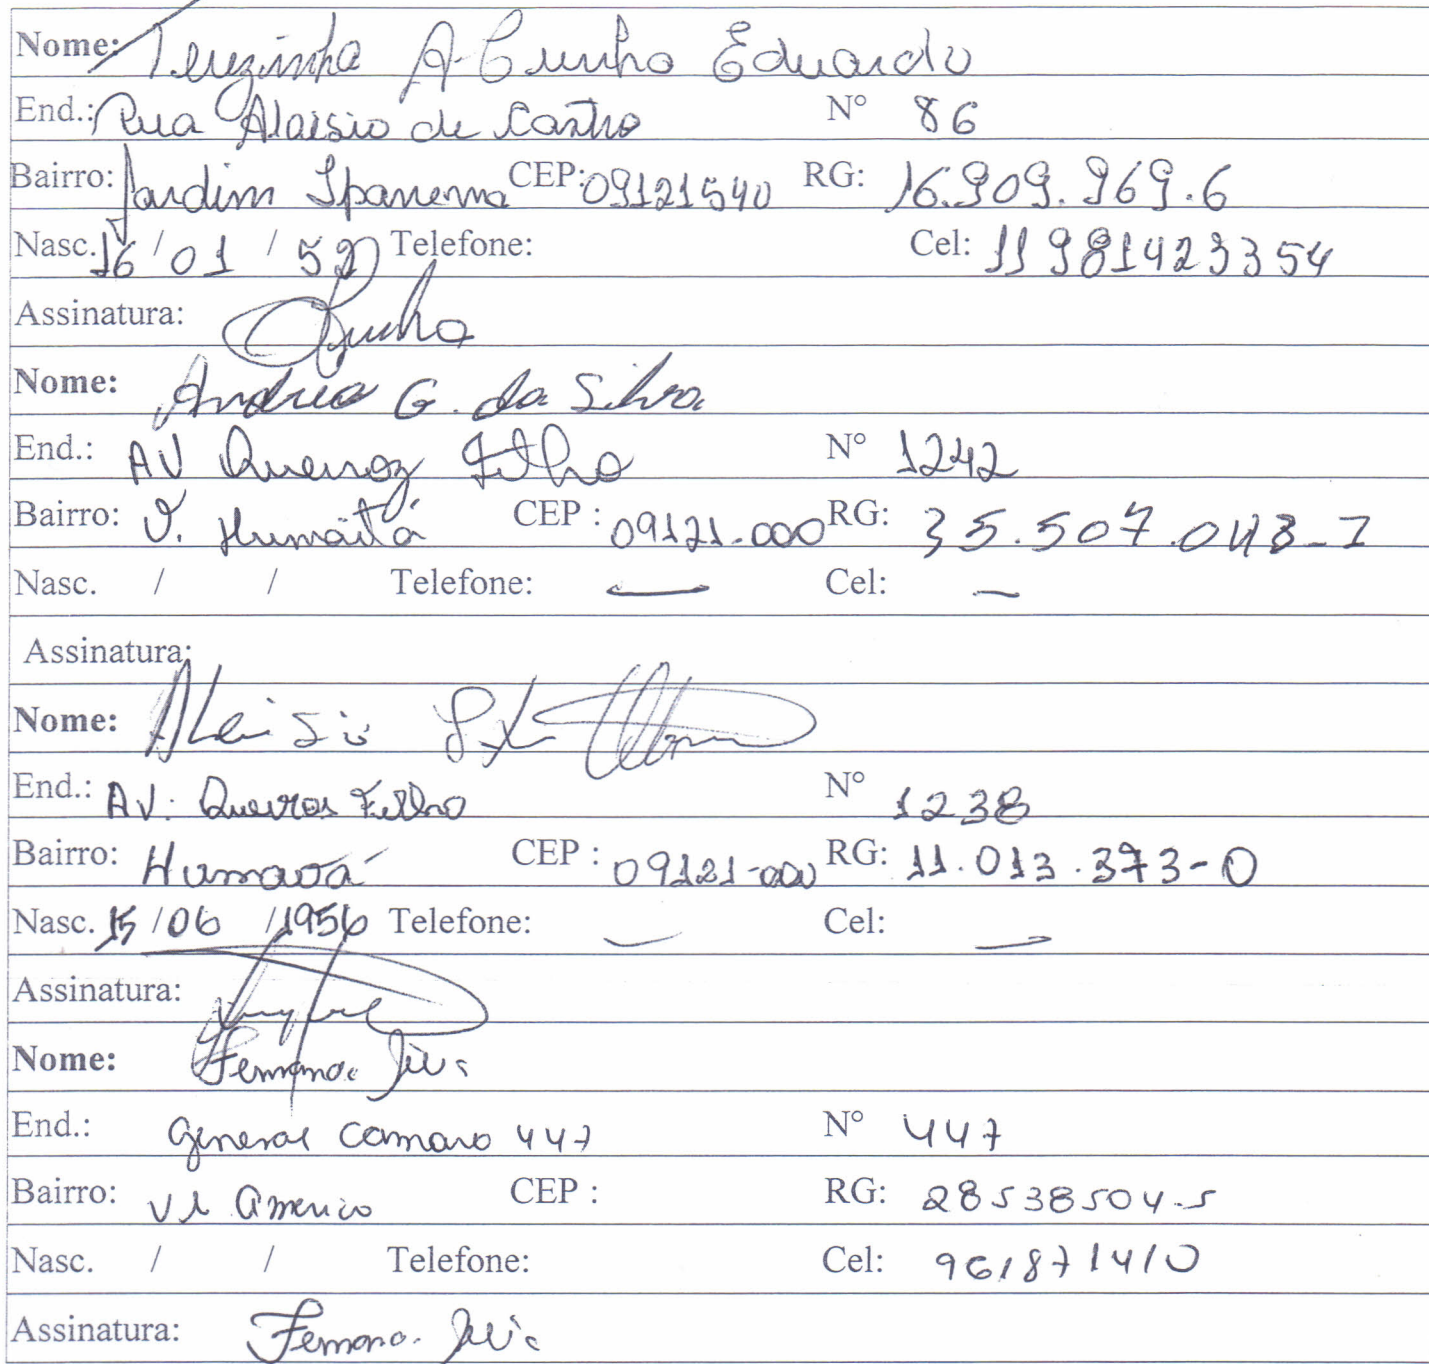 Nome: Terezinha A. Cunha Eduardo
End.: Rua Aloisio de Castro N° 86
Bairro: Jardim Ipanema CEP: 09121540 RG: 16.909.969.6
Nasc. 16 / 01 / 52 Telefone: Cel: 11 981423354
Assinatura: Cunha
Nome: Andrea G. da Silva
End.: AV Queiroz Filho N° 1242
Bairro: V. Humaitá CEP : 09121-000 RG: 35.507.048-7
Nasc. / / Telefone: — Cel: —
Assinatura:
Nome: Aloisio
End.: AV. Queiros Filho N° 1238
Bairro: Humaitá CEP : 09121-000 RG: 11.013.373-0
Nasc. 15 /06 /1956 Telefone: — Cel: —
Assinatura:
Nome: Fernanda
End.: General Camara 447 N° 447
Bairro: Vl America CEP : RG: 28538504-5
Nasc. / / Telefone: Cel: 961871410
Assinatura: